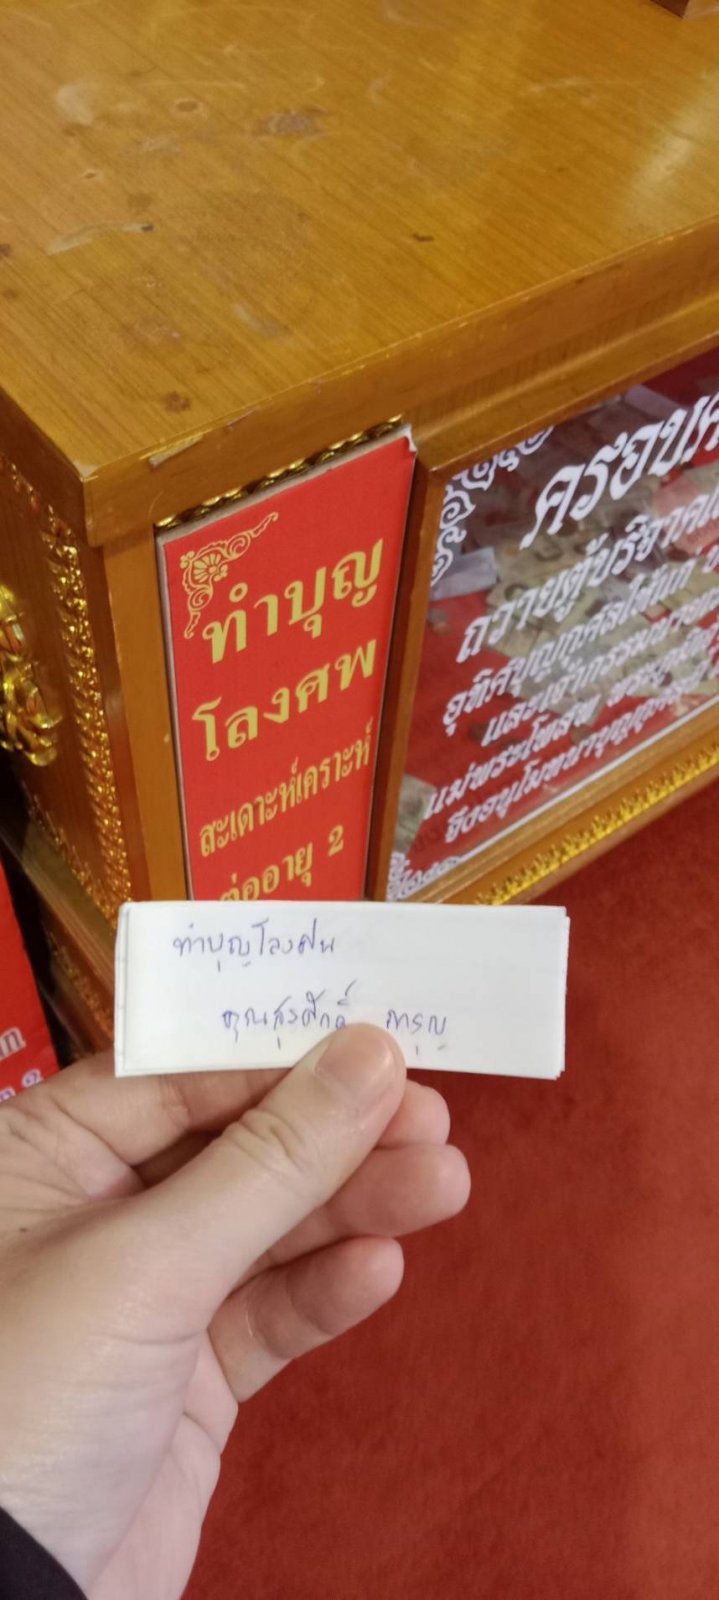 ทำบุญ
โลงศพ
สะเดาะห์เคราะห์
ต่ออายุ 2
ครอบค
ถวายตู้บริจาค
อุทิศบุญกุศลให้แก่
และเจ้ากรรมนายเวร
แม่พระโพสพ
จึงอนุโมทนาบุญ
ทำบุญโลงศพ
คุณสุรศักดิ์ การุญ